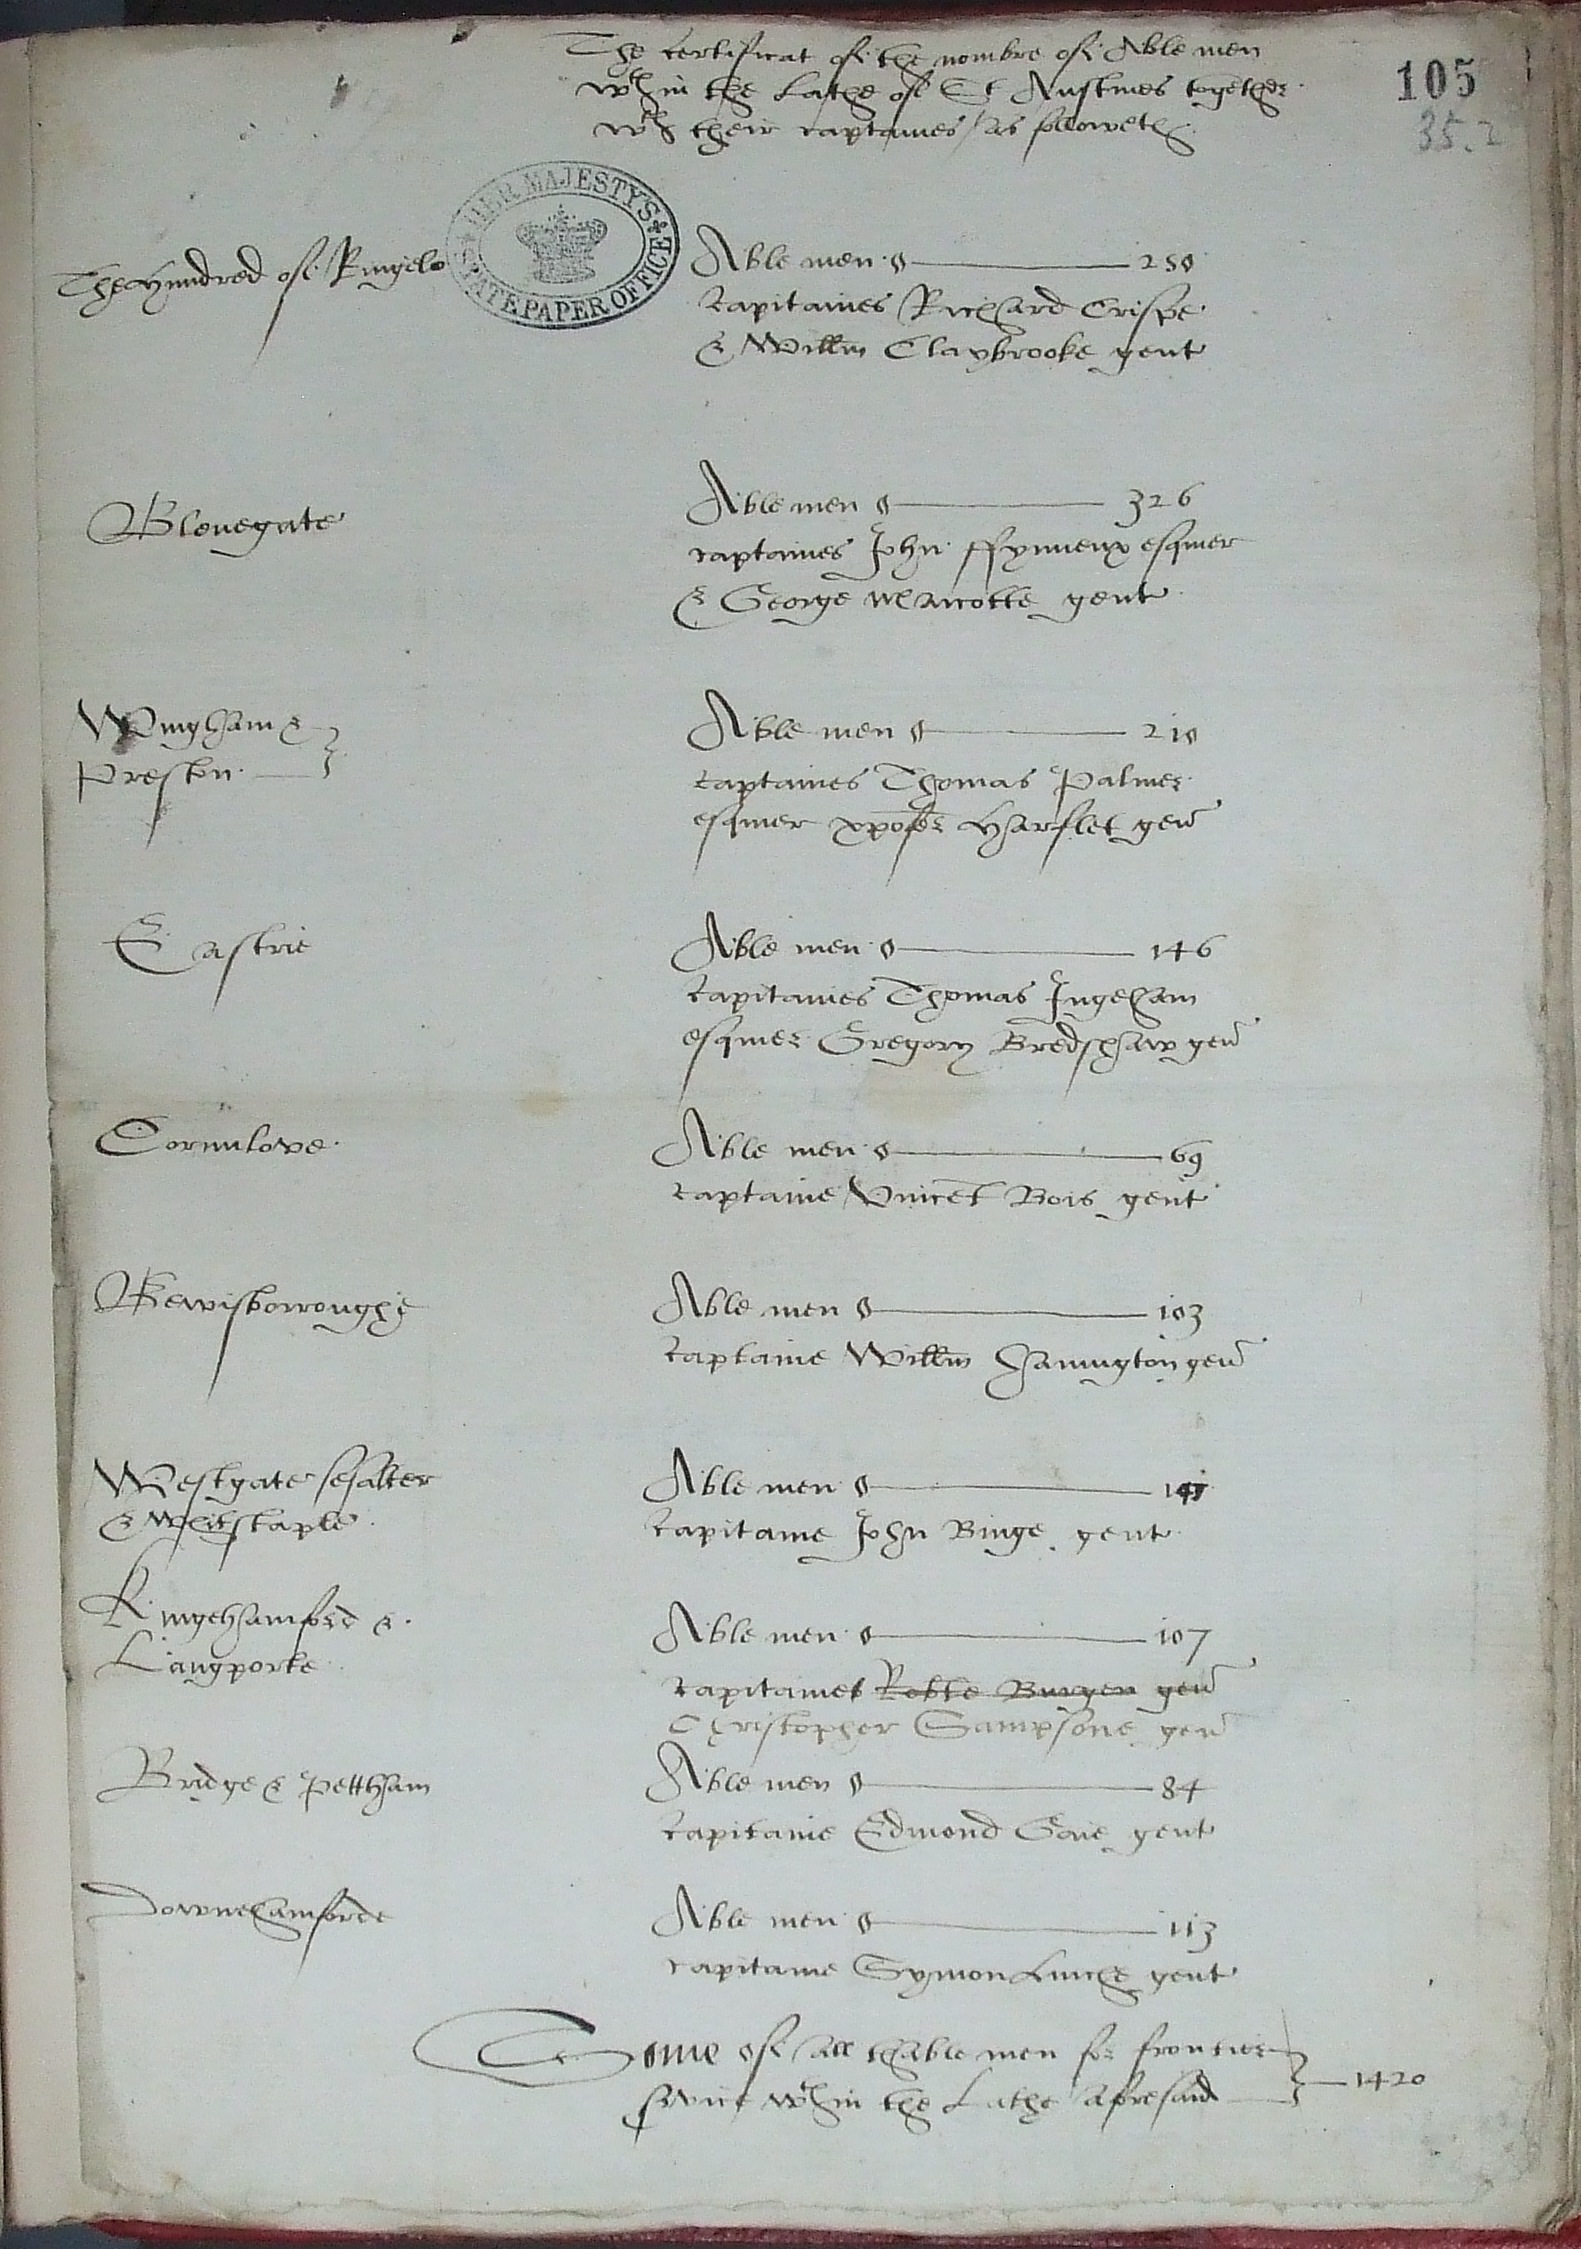 The certificat of the nombre of Able men
wth in the Lathe of St Austines together
wth their captaines / as followeth
105
35.2
HER MAJESTY'S STATE PAPER OFFICE
The Hundred of Ringelo
Able men 250
Capitaines Richard Crispe
& Willm Claybrooke gent
Blenegate
Able men 326
captaines John ffyneux esquier
& George gent
Wingham &
Preston
Able men 210
Captaines Thomas Palmer
esquier xpofer Harflet gent
Eastrie
Able men 146
Capitaines Thomas Ingeham
esquier Gregory Bredshaw gent
Cornilowe
Able men 69
captaine Vincet Bois gent
Bewisborroughe
Able men 103
Captaine Willm Hannington gent
Westgate sesalter
& Whitstaple
Able men
Capitaine John Binge gent
Kingehamford &
Langporte
Able men 107
Capitaines Robte Burgen gent
Christopher Sampsone gent
Bridge & Pettham
Able men 84
Capitaine Edmond gent
Downehamforde
Able men 113
capitaine Symon Linche gent
Some of all thable men for frontier
service wth in the Lathe aforesaid 1420